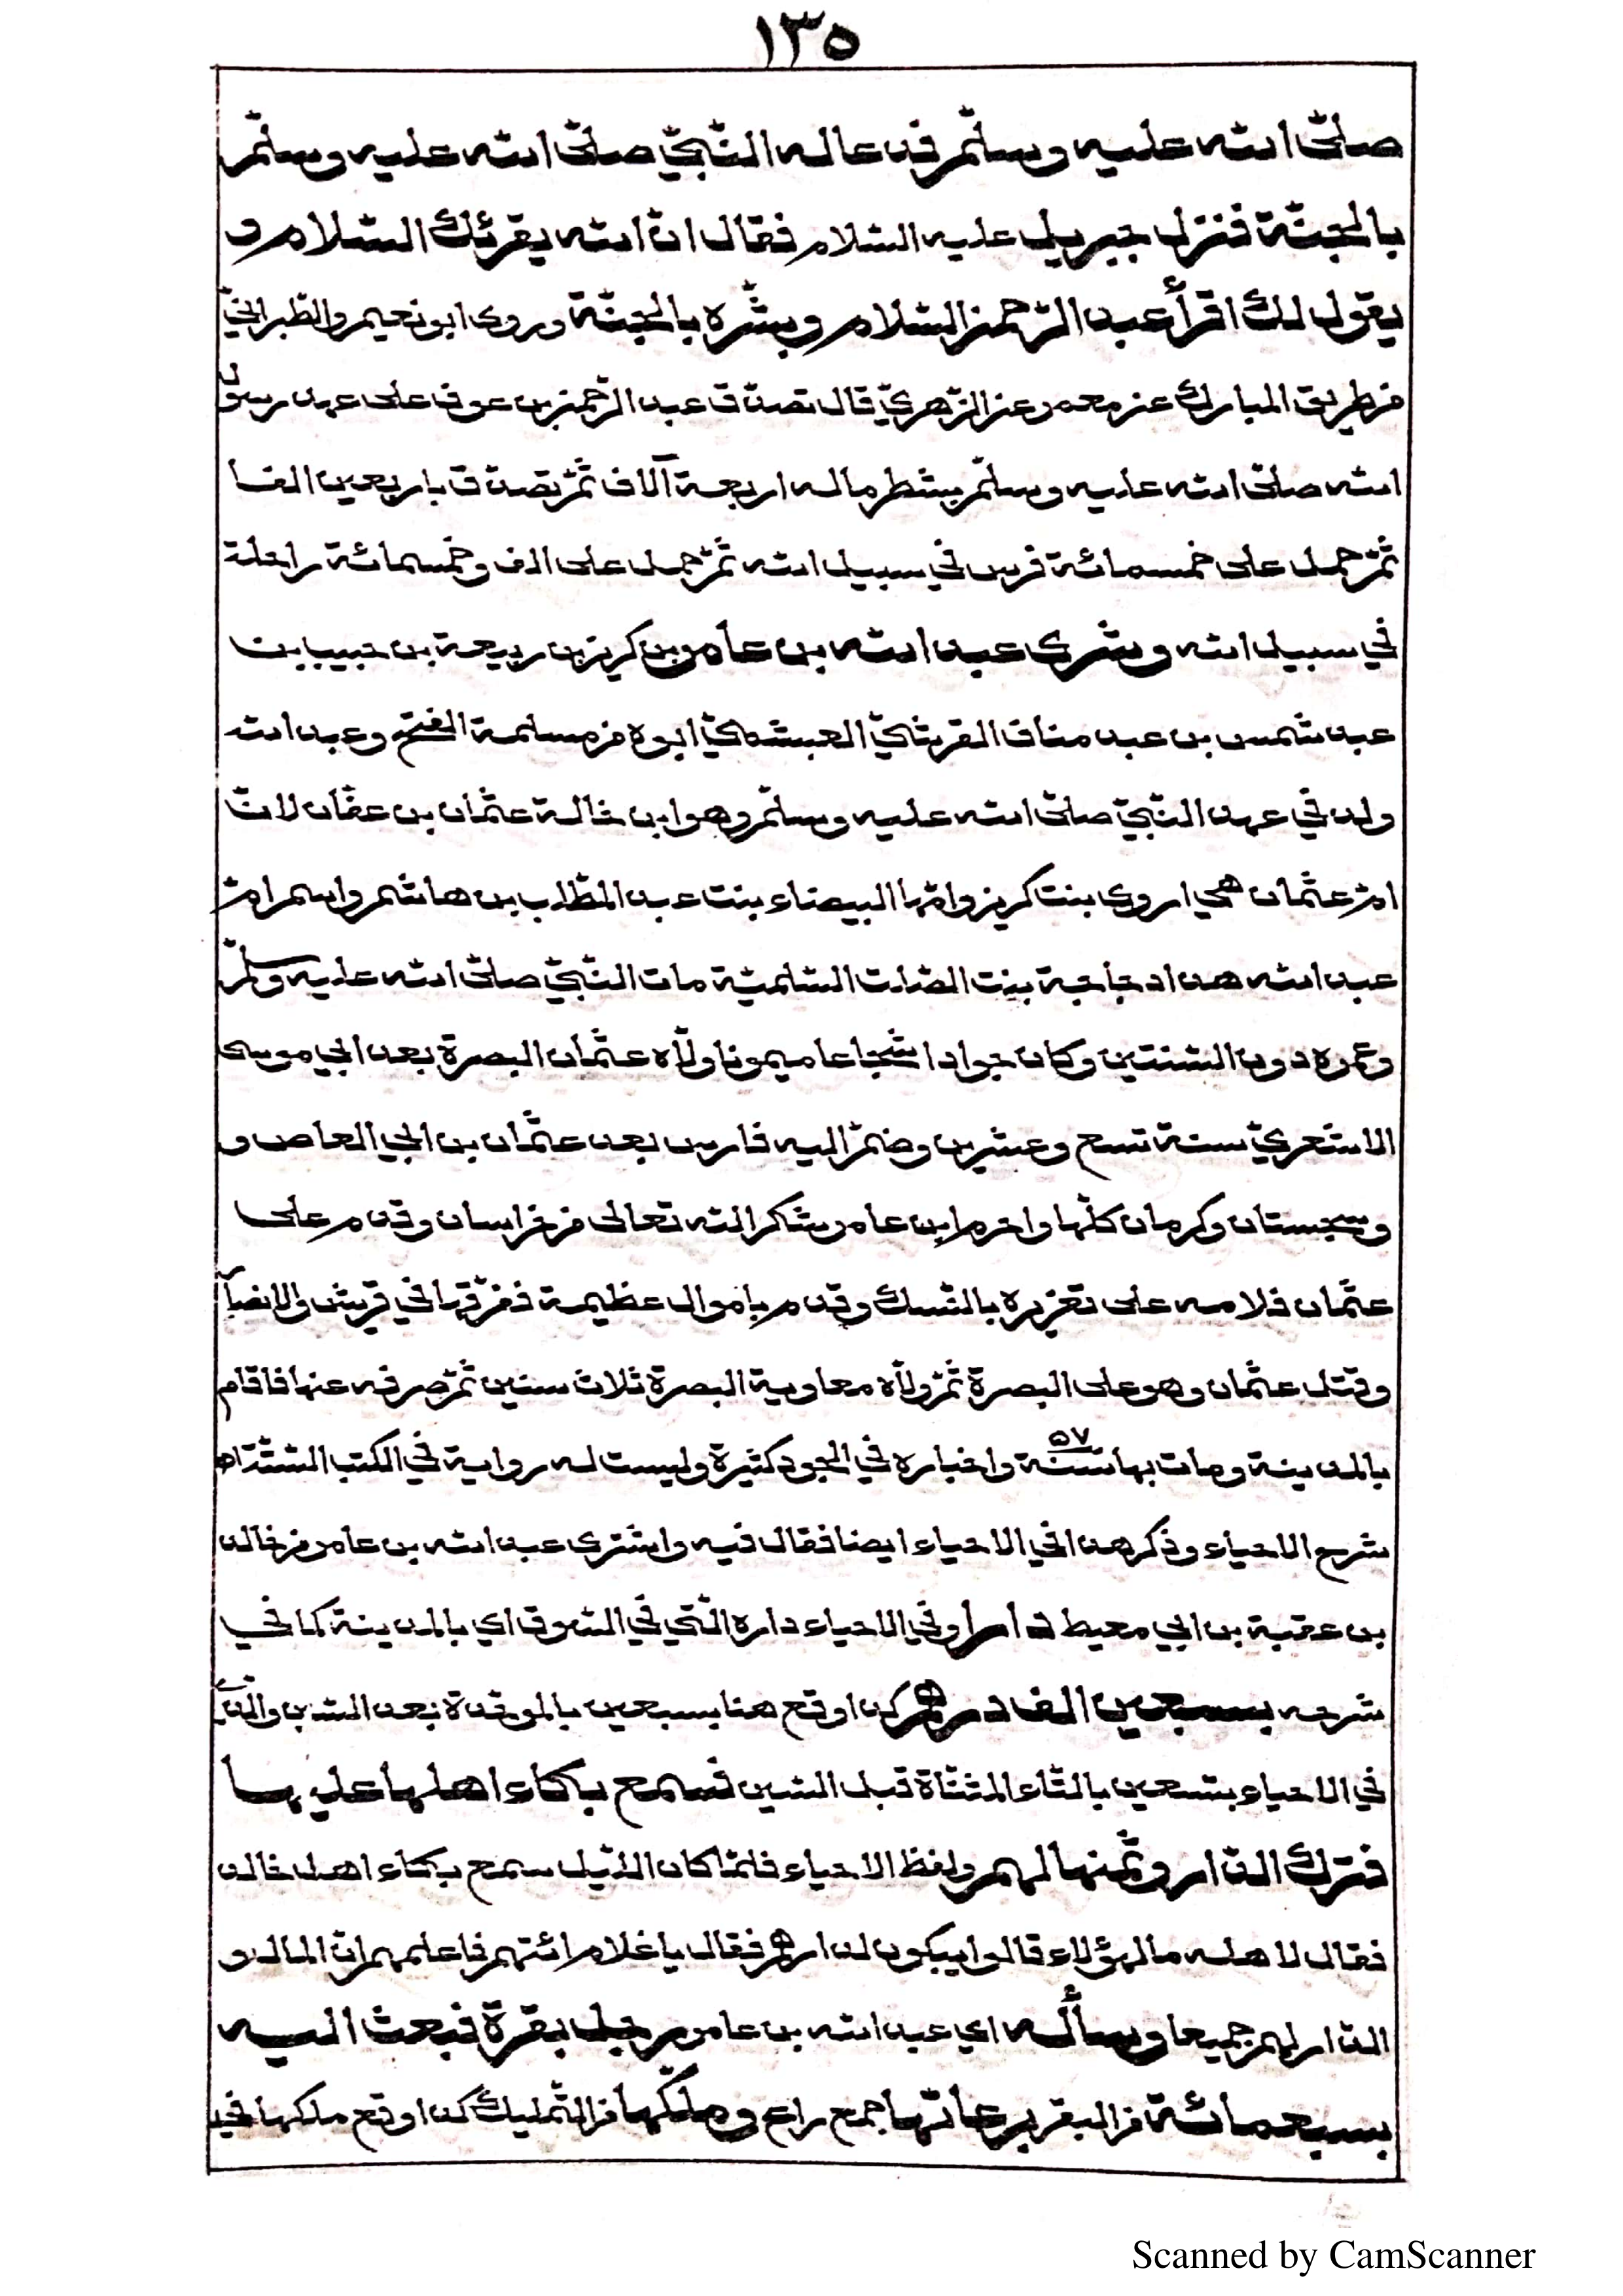 ١٣٥
صلّى الله عليه وسلّم فدعا له النّبيّ صلّى الله عليه وسلّم
بالجنّة فنزل جبريل عليه السّلام فقال انّ الله يقرئك السّلام و
يقول لك اقرأ عبد الرّحمن السّلام وبشّره بالجنّة وروى ابو نعيم والطّبرانيّ
من طريق المبارك عن معمر عن الزّهريّ قال تصدّق عبد الرّحمن بن عوف على عهد رسول
الله صلّى الله عليه وسلّم بشطر ماله اربعة آلاف ثمّ تصدّق باربعين الفا
ثمّ حمل على خمسمائة فرس في سبيل الله ثمّ حمل على الف وخمسمائة راحلة
في سبيل الله وشرى عبد الله بن عامر بن كريز بن ربيعة بن حبيب بن
عبد شمس بن عبد مناف القرشيّ العبشميّ ابوه من مسلمة الفتح وعبد الله
ولد في عهد النّبيّ صلّى الله عليه وسلّم وهو ابن خالة عثمان بن عفّان لانّ
امّ عثمان هي اروى بنت كريز وامّها البيضاء بنت عبد المطّلب بن هاشم واسم امّ
عبد الله هذا دجاجة بنت الصّلت السّلميّة مات النّبيّ صلّى الله عليه وسلّم
وعمره دون السّنتين وكان جوادا شجاعا ميمونا ولّاه عثمان البصرة بعد ابي موسى
الاشعريّ سنة تسع وعشرين وضمّ اليه فارس بعد عثمان بن ابي العاص و
وسجستان وكرمان كلّها واحرم ابن عامر شكرا لله تعالى من خراسان وقدم على
عثمان فلامه على تغريره بالنّسك وقدم باموال عظيمة ففرّقها في قريش والانصار
وقتل عثمان وهو على البصرة ثمّ ولّاه معاوية البصرة ثلاث سنين ثمّ صرفه عنها فاقام
بالمدينة ومات بها سنة ٥٧ واخباره في الجود كثيرة وليست له رواية في الكتب السّتّة اه
شرح الاحياء وذكر هذا في الاحياء ايضا فقال فيه واشترى عبد الله بن عامر من خالد
بن عقبة بن ابي معيط دارا وفي الاحياء داره الّتي في السّوق اي بالمدينة كما في
شرحه بسبعين الف درهم كذا وقع هنا بسبعين بالموحّدة بعد السّين والّذي
في الاحياء بتسعين بالتّاء المثنّاة قبل السّين فسمع بكاء اهلها عليها
فترك الدّار وثمنها لهم ولفظ الاحياء فلمّا كان اللّيل سمع بكاء اهل خالد
فقال لاهله ما لهؤلاء قالوا يبكون لدارهم فقال يا غلام ائتهم فاعلمهم انّ المال و
الدّار لهم جميعا وسأله اي عبد الله بن عامر رجل بقرة فبعث اليه
بسبعمائة من البقر برعاتها جمع راع وملّكها من التّمليك كذا وقع ملكها في
Scanned by CamScanner